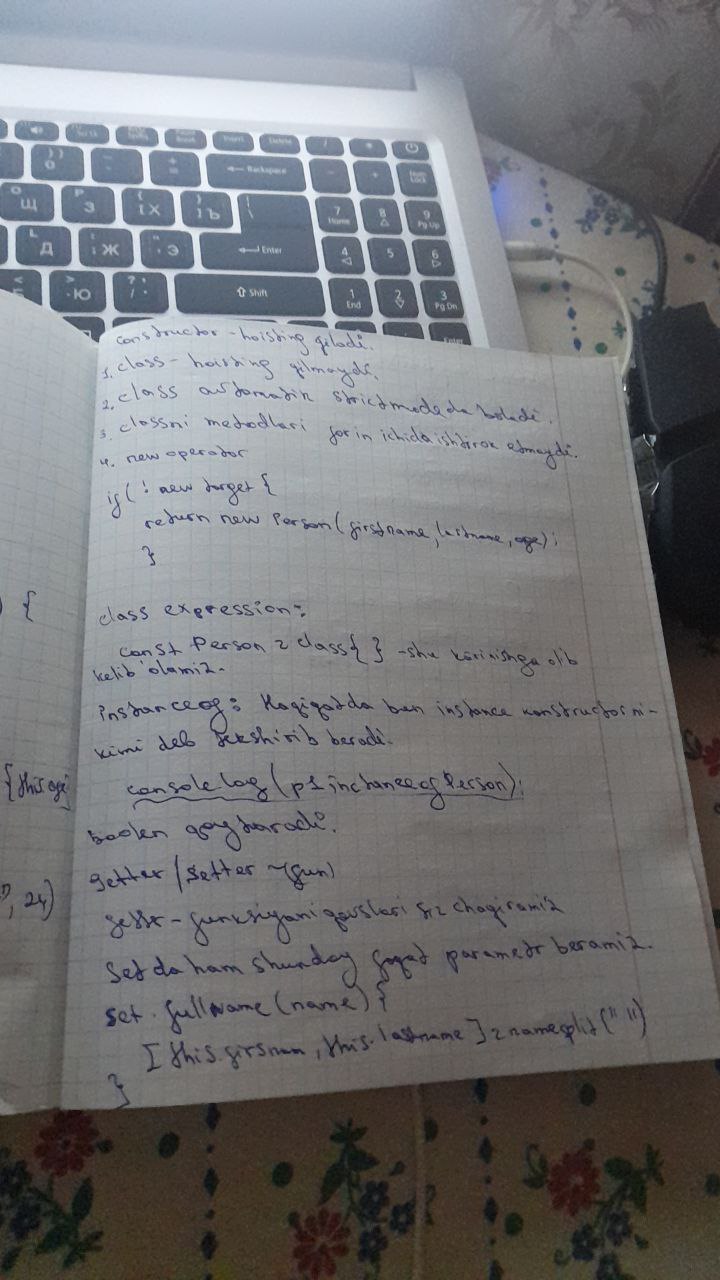 Insert
Delete
Backspace
Num Lock
Щ
З
Х
Ъ
7 Home
8
9 Pg Up
Д
Ж
Э
Enter
4
5
6
Ю
Shift
1 End
2
3 Pg Dn
Enter
constructor - hoisting qiladi.
1. class - hoisting qilmaydi.
2. class avtomatik strictmodeda boladi.
3. classni metodlari for in ichida ishtirok etmaydi.
4. new operator
if (! new target {
return new Person (firstname, lastname, age);
}
class expression:
const Person = class { } - shu korinishga olib
kelib olamiz.
instanceof: Haqiqatda ham instance konstructorni-
kimi deb tekshirib beradi.
console log (p1 inctanceof Person);
boolen qaytaradi.
getter / setter
- funksiyani qavslari siz chaqiramiz
Set da ham shunday faqat parametr beramiz.
set. fullname (name) {
[ this.firsnam, this.lastname ] = namesplit (" ")
}
{
{this.age
", 24)